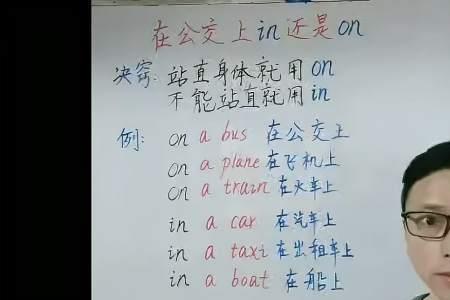 在公交上in还是on
决窍:站直身体就用on
不能站直就用in
例: on a bus 在公交上
on a plane 在飞机上
on a train 在火车上
in a car 在汽车上
in a taxi 在出租车上
in a boat 在船上